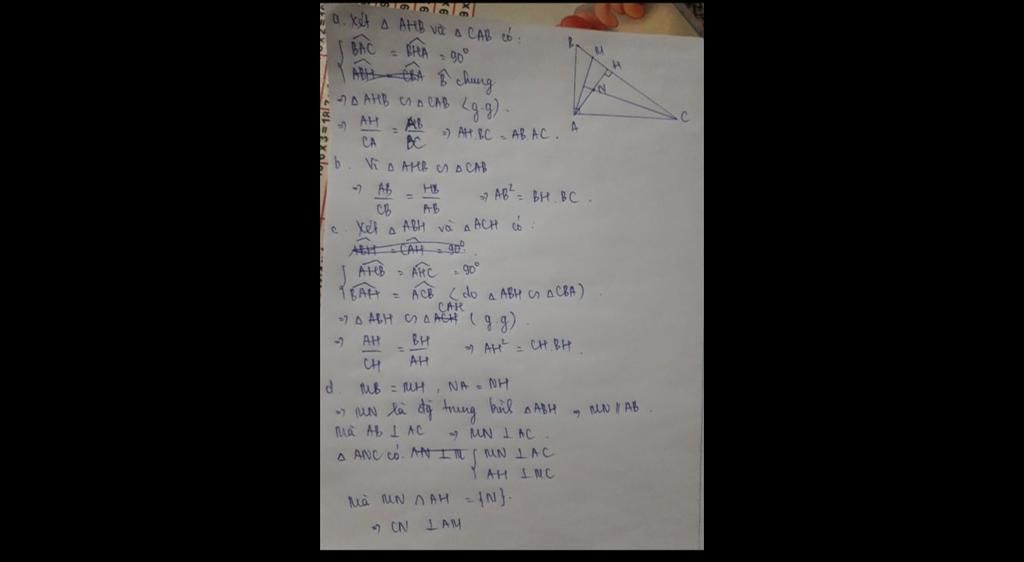 a. Xét △ AHB và △ CAB có:
BAC = BHA = 90°
ABH = CBA B chung
⇒ △ AHB ∽ △ CAB (g.g).
⇒ AH/CA = AB/BC ⇒ AH.BC = AB.AC.
b. Vì △ AHB ∽ △ CAB
⇒ AB/CB = HB/AB ⇒ AB² = BH.BC.
c. Xét △ ABH và △ ACH có:
ABH = CAH = 90°.
AHB = AHC = 90°
BAH = ACB (do △ ABH ∽ △ CBA)
⇒ △ ABH ∽ △ ACH CAH (g.g).
⇒ AH/CH = BH/AH ⇒ AH² = CH.BH.
d. MB = MH, NA = NH
⇒ MN là độ trung bình △ ABH ⇒ MN // AB.
Mà AB ⊥ AC ⇒ MN ⊥ AC.
△ ANC có: AN ⊥ M { MN ⊥ AC
AH ⊥ MC
Mà MN ∩ AH = {N}.
⇒ CN ⊥ AM
B
M
H
N
A
C